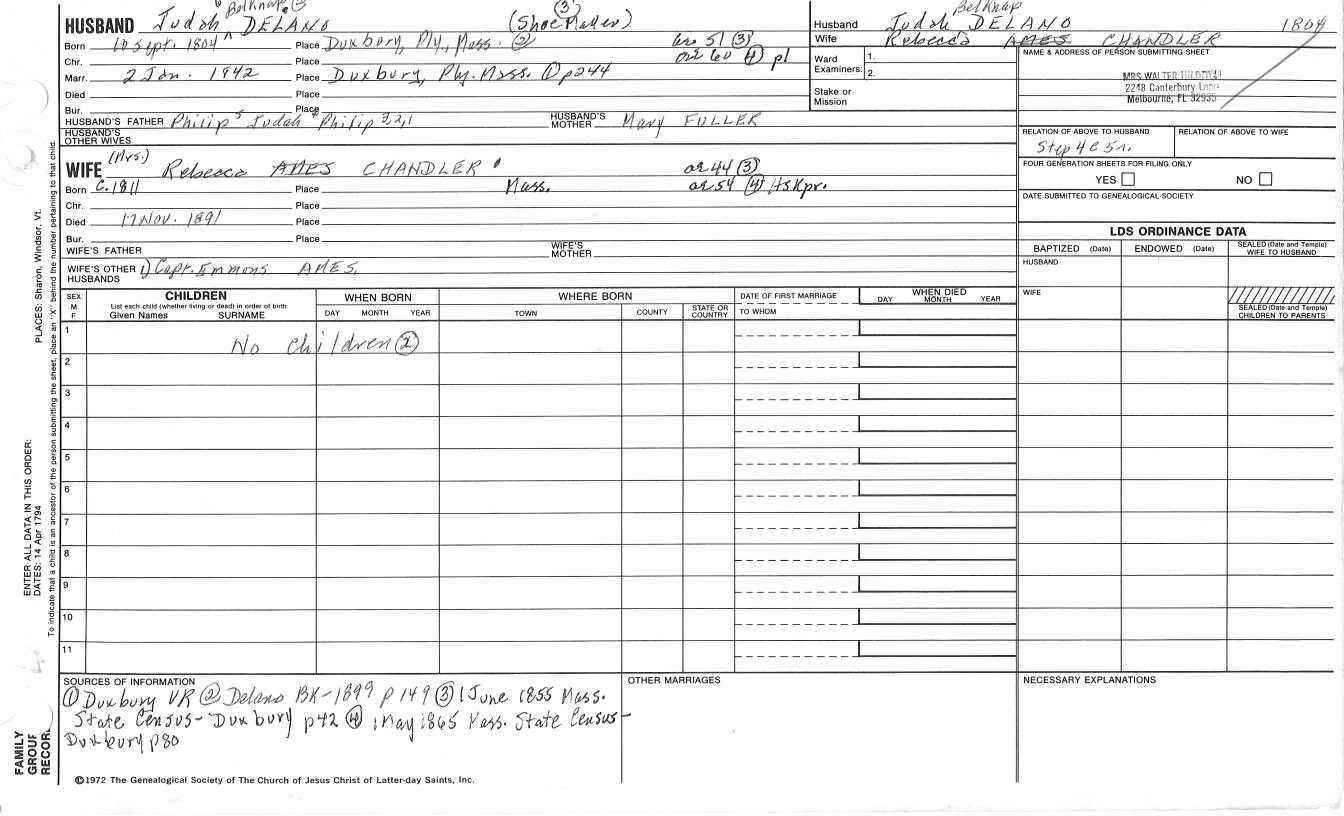 Belknap ②
HUSBAND Judah ^ DELANO (Shoe Maker) ③
Born 10 Sept. 1804 Place Duxbury, Ply, Mass. ② 51 ③
Chr. Place 60 ④ p1
Marr. 2 Jan. 1842 Place Duxbury, Ply. Mass. ① p244
Died Place
Bur. Place
HUSBAND'S FATHER Philip 5 Judah 4 Philip 3,2,1 HUSBAND'S MOTHER Mary FULLER
HUSBAND'S OTHER WIVES
(Mrs.)
WIFE Rebecca AMES CHANDLER 44 ③
Born C. 1811 Place Mass. 54 ④ HsKpr.
Chr. Place
Died 17 Nov. 1891 Place
Bur. Place
WIFE'S FATHER WIFE'S MOTHER
WIFE'S OTHER HUSBANDS 1) Capt. Emmons AMES.
Belknap
Husband Judah DELANO 1804
Wife Rebecca AMES CHANDLER
Ward Examiners: 1. 2.
Stake or Mission
NAME & ADDRESS OF PERSON SUBMITTING SHEET
MRS WALTER
2248 Canterbury Lane
Melbourne, FL 32935
RELATION OF ABOVE TO HUSBAND RELATION OF ABOVE TO WIFE
Step 4C 5r.
FOUR GENERATION SHEETS FOR FILING ONLY
YES NO
DATE SUBMITTED TO GENEALOGICAL SOCIETY
LDS ORDINANCE DATA
BAPTIZED (Date) ENDOWED (Date) SEALED (Date and Temple) WIFE TO HUSBAND
HUSBAND
WIFE
SEALED (Date and Temple) CHILDREN TO PARENTS
SEX M F
CHILDREN
List each child (whether living or dead) in order of birth
Given Names SURNAME
WHEN BORN
DAY MONTH YEAR
WHERE BORN
TOWN COUNTY STATE OR COUNTRY
DATE OF FIRST MARRIAGE
TO WHOM
WHEN DIED
DAY MONTH YEAR
1
No Children ②
2
3
4
5
6
7
8
9
10
11
SOURCES OF INFORMATION
① Duxbury VR ② Delano BK-1899 p 149 ③ 1 June 1855 Mass.
State Census- Duxbury p42 ④ 1 May 1865 Mass. State Census-
Duxbury p80
OTHER MARRIAGES
NECESSARY EXPLANATIONS
©1972 The Genealogical Society of The Church of Jesus Christ of Latter-day Saints, Inc.
FAMILY
GROUP
RECOR
ENTER ALL DATA IN THIS ORDER:
DATES: 14 Apr 1794
PLACES: Sharon, Windsor, Vt.
To indicate that a child is an ancestor of the person submitting the sheet, place an "X" behind the number pertaining to that child.